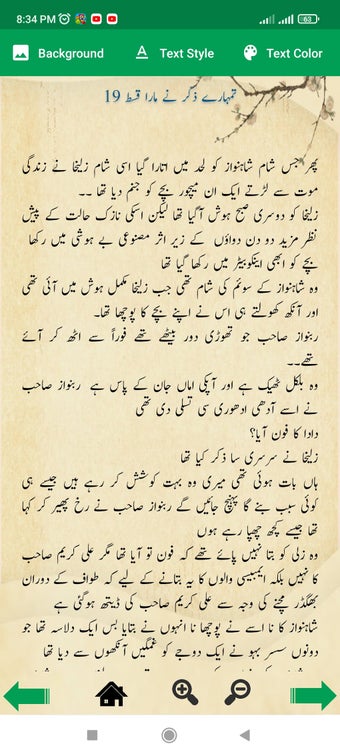 8:34 PM
63
Background
Text Style
Text Color
تمہارے ذکر نے مارا قسط 19
پھر جس شام شاہنواز کو لحد میں اتارا گیا اسی شام زلیخا نے زندگی
موت سے لڑتے ایک ان میچور بچے کو جنم دیا تھا ۔۔
زلیخا کو دوسری صبح ہوش آگیا تھا لیکن اسکی نازک حالت کے پیش
نظر مزید دو دن دواؤں کے زیر اثر مصنوعی بے ہوشی میں رکھا
بچے کو ابھی اینکوبیٹر میں رکھا گیا تھا
وہ شاہنواز کے سوئم کی شام تھی جب زلیخا مکمل ہوش میں آئی تھی
اور آنکھ کھولتے ہی اس نے اپنے بچے کا پوچھا تھا۔
ربنواز صاحب جو تھوڑی دور بیٹھے تھے فوراً سے اٹھ کر آئے
تھے۔۔
وہ بلکل ٹھیک ہے اور آپکی اماں جان کے پاس ہے ربنواز صاحب
نے اسے آدھی ادھوری سی تسلی دی تھی
دادا کا فون آیا؟
زلیخا نے سرسری سا ذکر کیا تھا
ہاں بات ہوئی تھی میری وہ بہت کوشش کر رہے ہیں جیسے ہی
کوئی سبب بنے گا پہنچ جائیں گے ربنواز صاحب نے رخ پھیر کر کہا
تھا جیسے کچھ چھپا رہے ہوں
وہ زلی کو بتا نہیں پائے تھے کہ فون تو آیا تھا مگر علی کریم صاحب
کا نہیں بلکہ ایمبیسی والوں کا یہ بتانے کے لیے کہ طواف کے دوران
بھگدڑ مچنے کی وجہ سے علی کریم صاحب کی ڈیتھ ہوگئی ہے
شاہنواز کا نا اسے نے پوچھا نا انہوں نے بتایا بس ایک دلاسہ تھا جو
دونوں سسر بہو نے ایک دوجے کو غمگیں آنکھوں سے دیا تھا